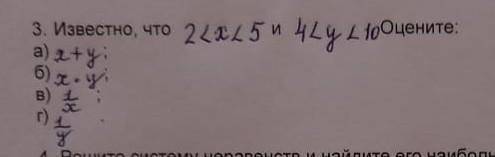 3. Известно, что 2<x<5 и 4<y<10 Оцените:
а) x+y;
б) x·y;
в) 1/x ;
г) 1/y .
4. Решите систему неравенств и найдите его наиболь